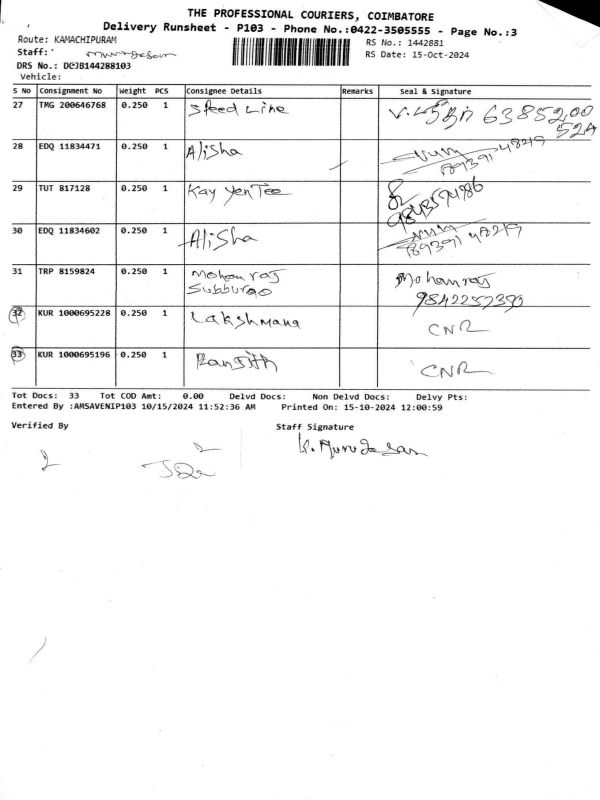 THE PROFESSIONAL COURIERS, COIMBATORE
Delivery Runsheet - P103 - Phone No.:0422-3505555 - Page No.:3
Route: KAMACHIPURAM
RS No.: 1442881
Staff: Murugesan
RS Date: 15-Oct-2024
DRS No.: DCJB144288103
Vehicle:
S No Consignment No Weight PCS Consignee Details Remarks Seal & Signature
27 TMG 200646768 0.250 1 Speed Line 63852,00
52A
28 EDQ 11834471 0.250 1 Alisha
29 TUT 817128 0.250 1 Kay Yen Tee
30 EDQ 11834602 0.250 1 Alisha
31 TRP 8159824 0.250 1 Mohanraj Mohanraj
Subburao 9842257390
32 KUR 1000695228 0.250 1 Lakshmana CNR
33 KUR 1000695196 0.250 1 Ranjith CNR
Tot Docs: 33 Tot COD Amt: 0.00 Delvd Docs: Non Delvd Docs: Delvy Pts:
Entered By :AMSAVENIP103 10/15/2024 11:52:36 AM Printed On: 15-10-2024 12:00:59
Verified By Staff Signature
K. Murugesan